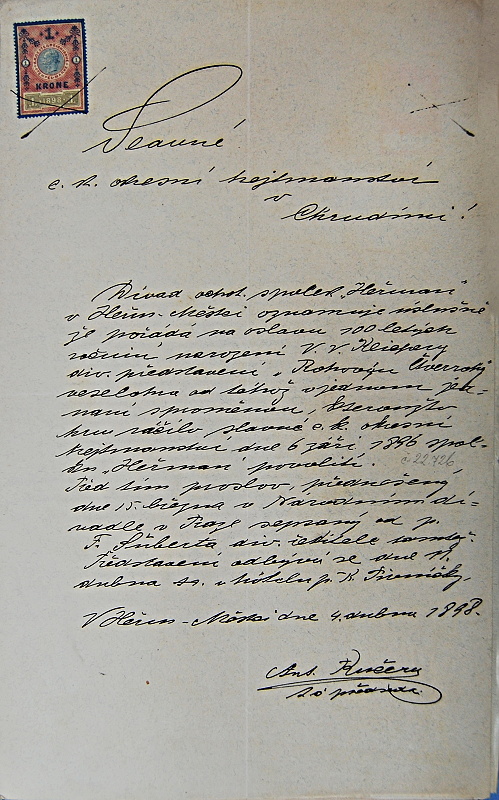 1
KRONE
1898
Slavné
c. k. okresní hejtmanství
v
Chrudimi!
Divad. ochot. spolek „Heřman"
v Heřm.-Městci oznamuje uslušně
že pořádá na oslavu 100 letých
ročnin narození V. V. Klicpery
div. představení „Rohovín Čverrohý
veselohra od téhož v jednom jed-
nání s proměnou, kteroužto
hru ráčilo slavné c. k. okresní
hejtmanství dne 6 září 1886 spol-
ku „Heřman" povoliti.
č 22.726
Před tím proslov, přednesený
dne 15. března v Národním di-
vadle v Praze sepsaný od p.
F. Šuberta div. ředitele tamtéž.
Představení odbývá se dne
dubna t.r. v hotelu p. K.
V Heřm.-Městci dne 4. dubna 1898.
Ant. Kučera